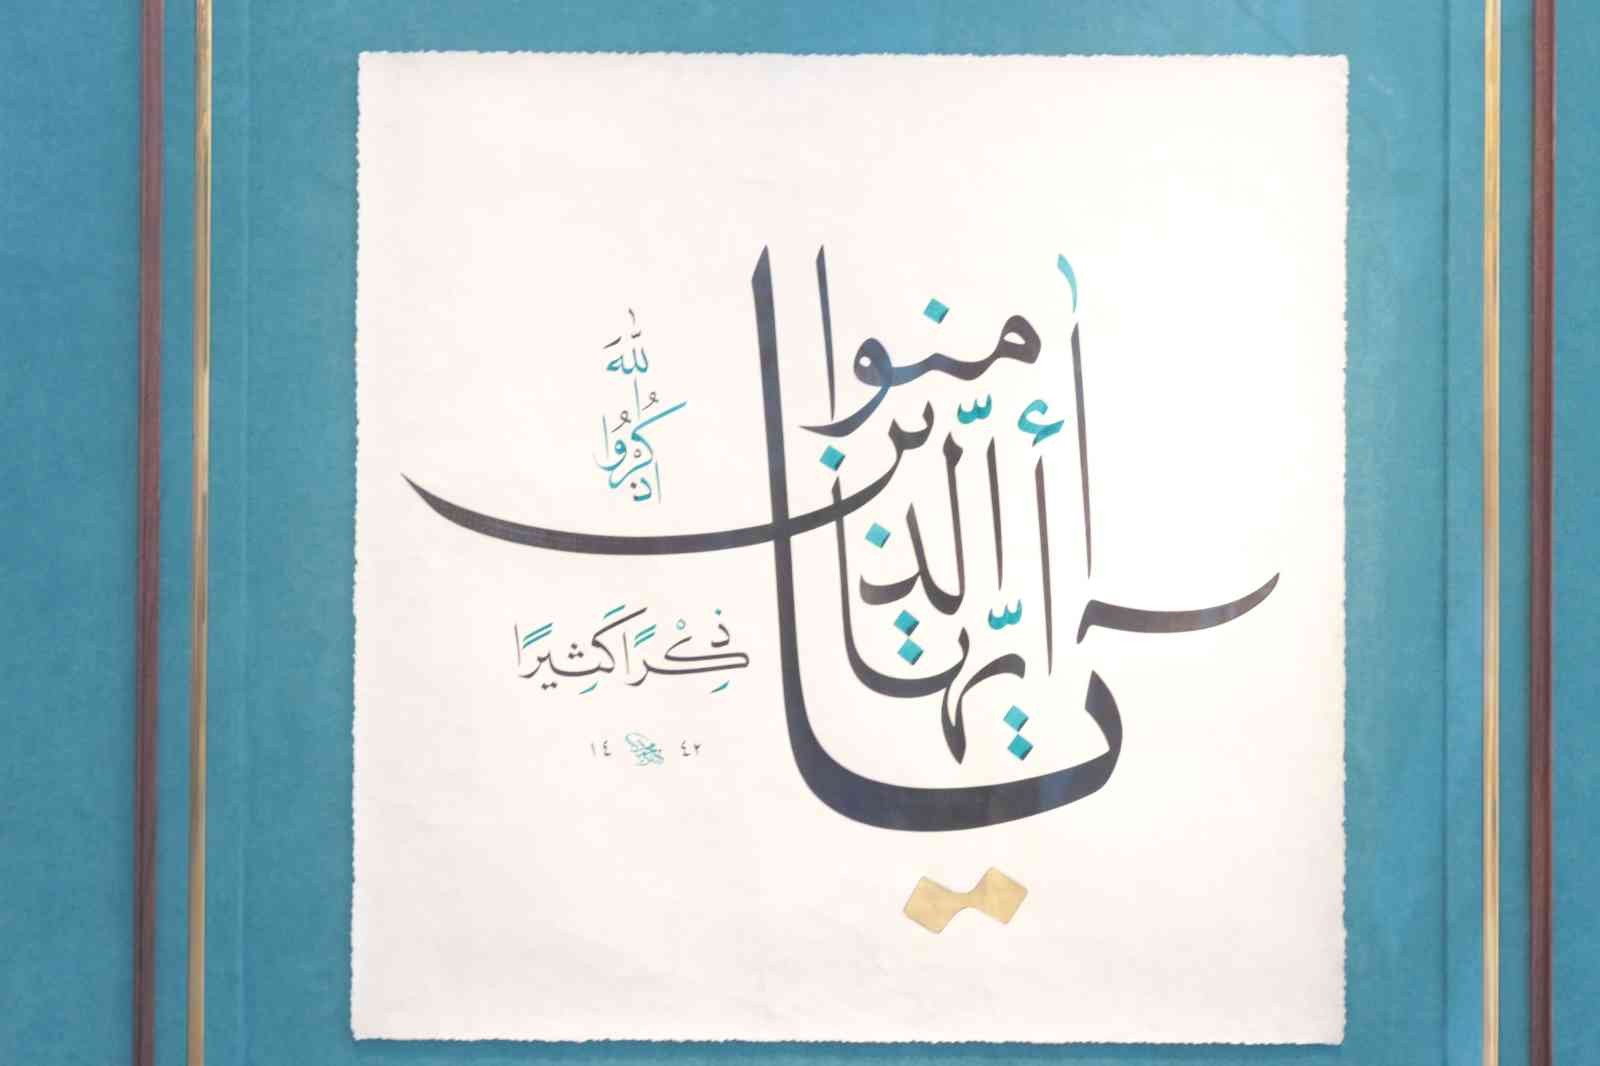 يا أيها الذين آمنوا
اذكروا الله
ذِكْرًا كَثِيرًا
١٤ ٤٢